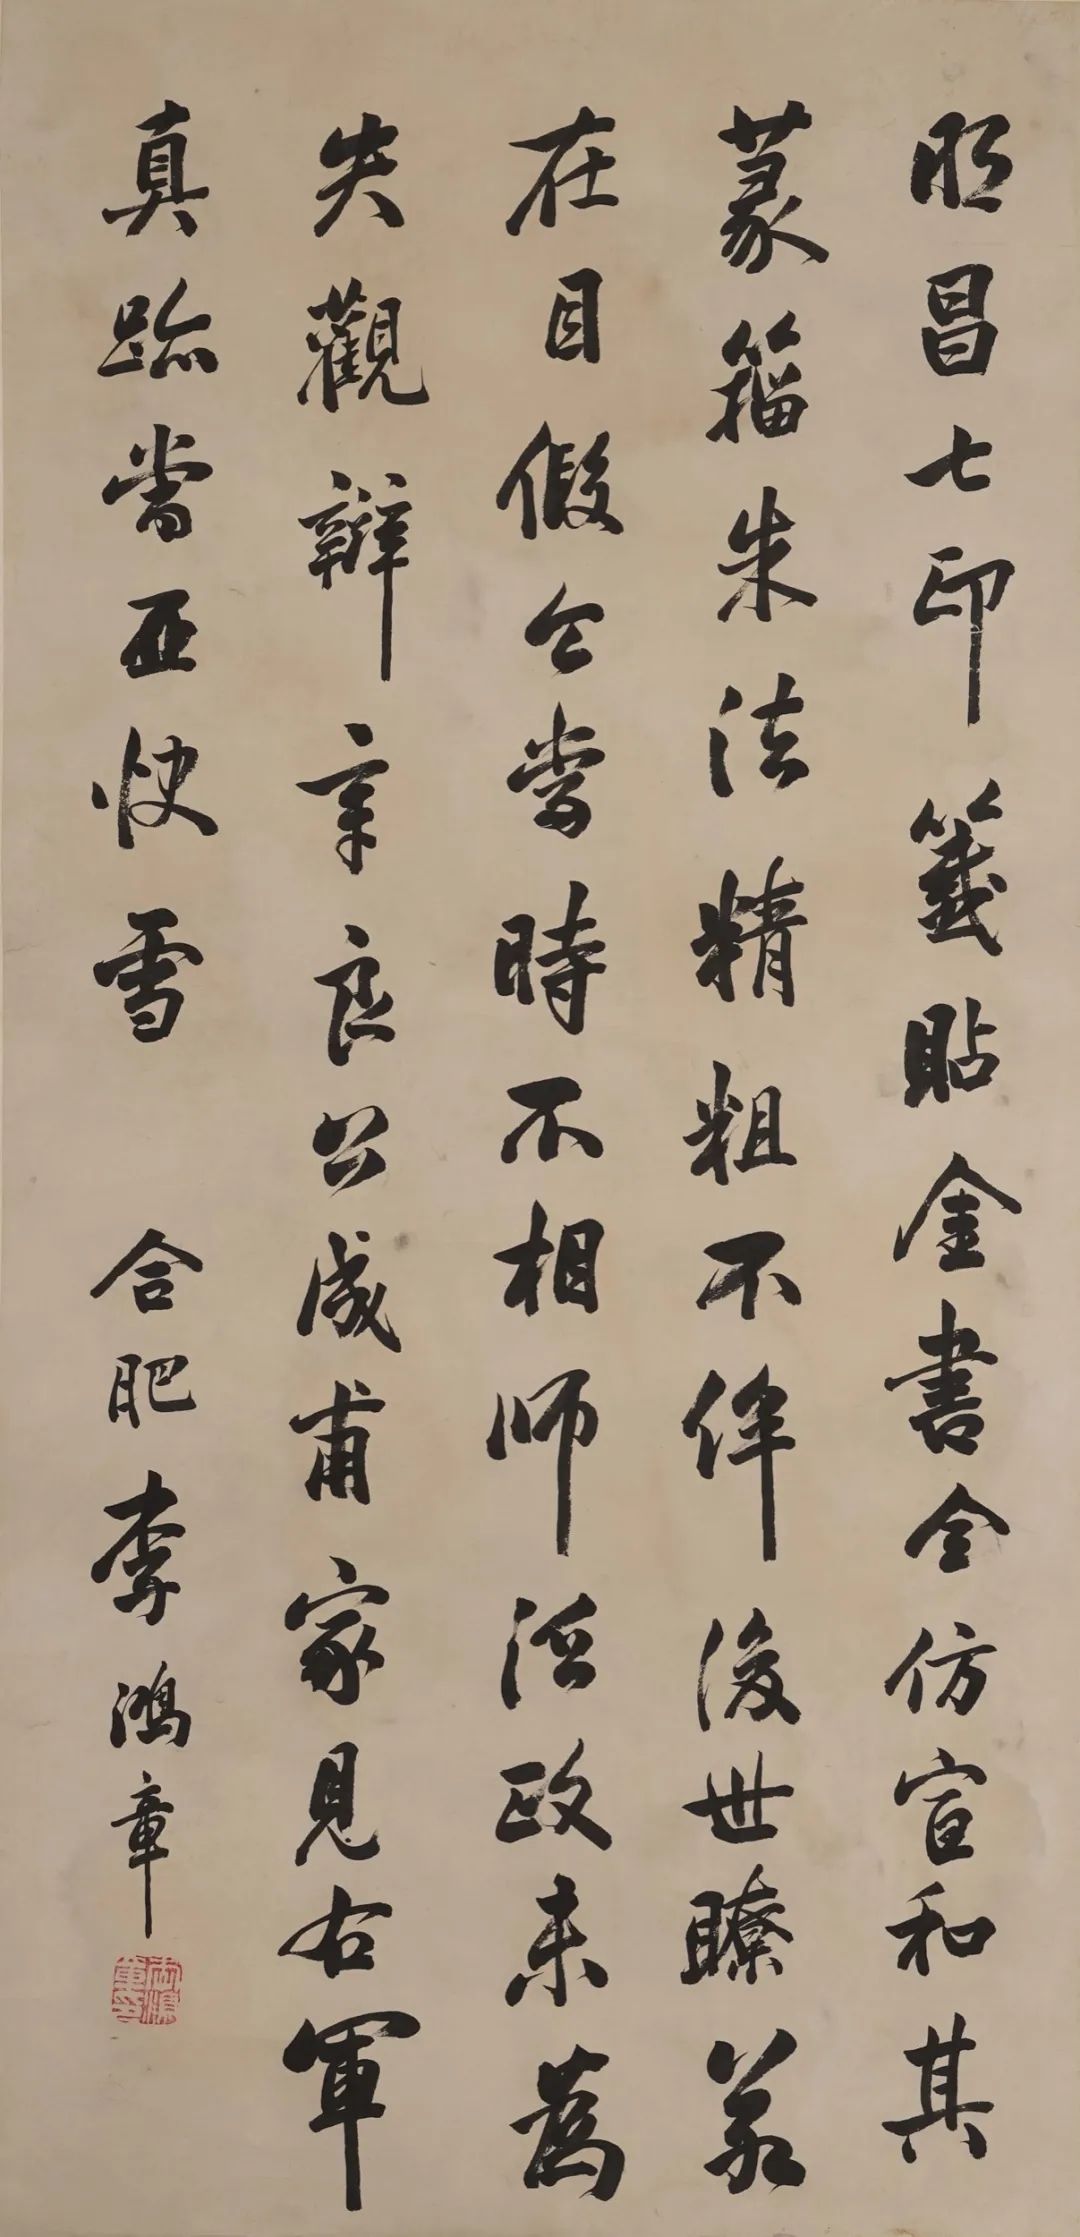 明昌七印籤貼金書全仿宣和其
篆籀朱法精粗不侔後世瞭然
在目假令當時不相師法政未為
失觀辯辛良公成甫家見右軍
真跡當亞快雪 合肥李鴻章